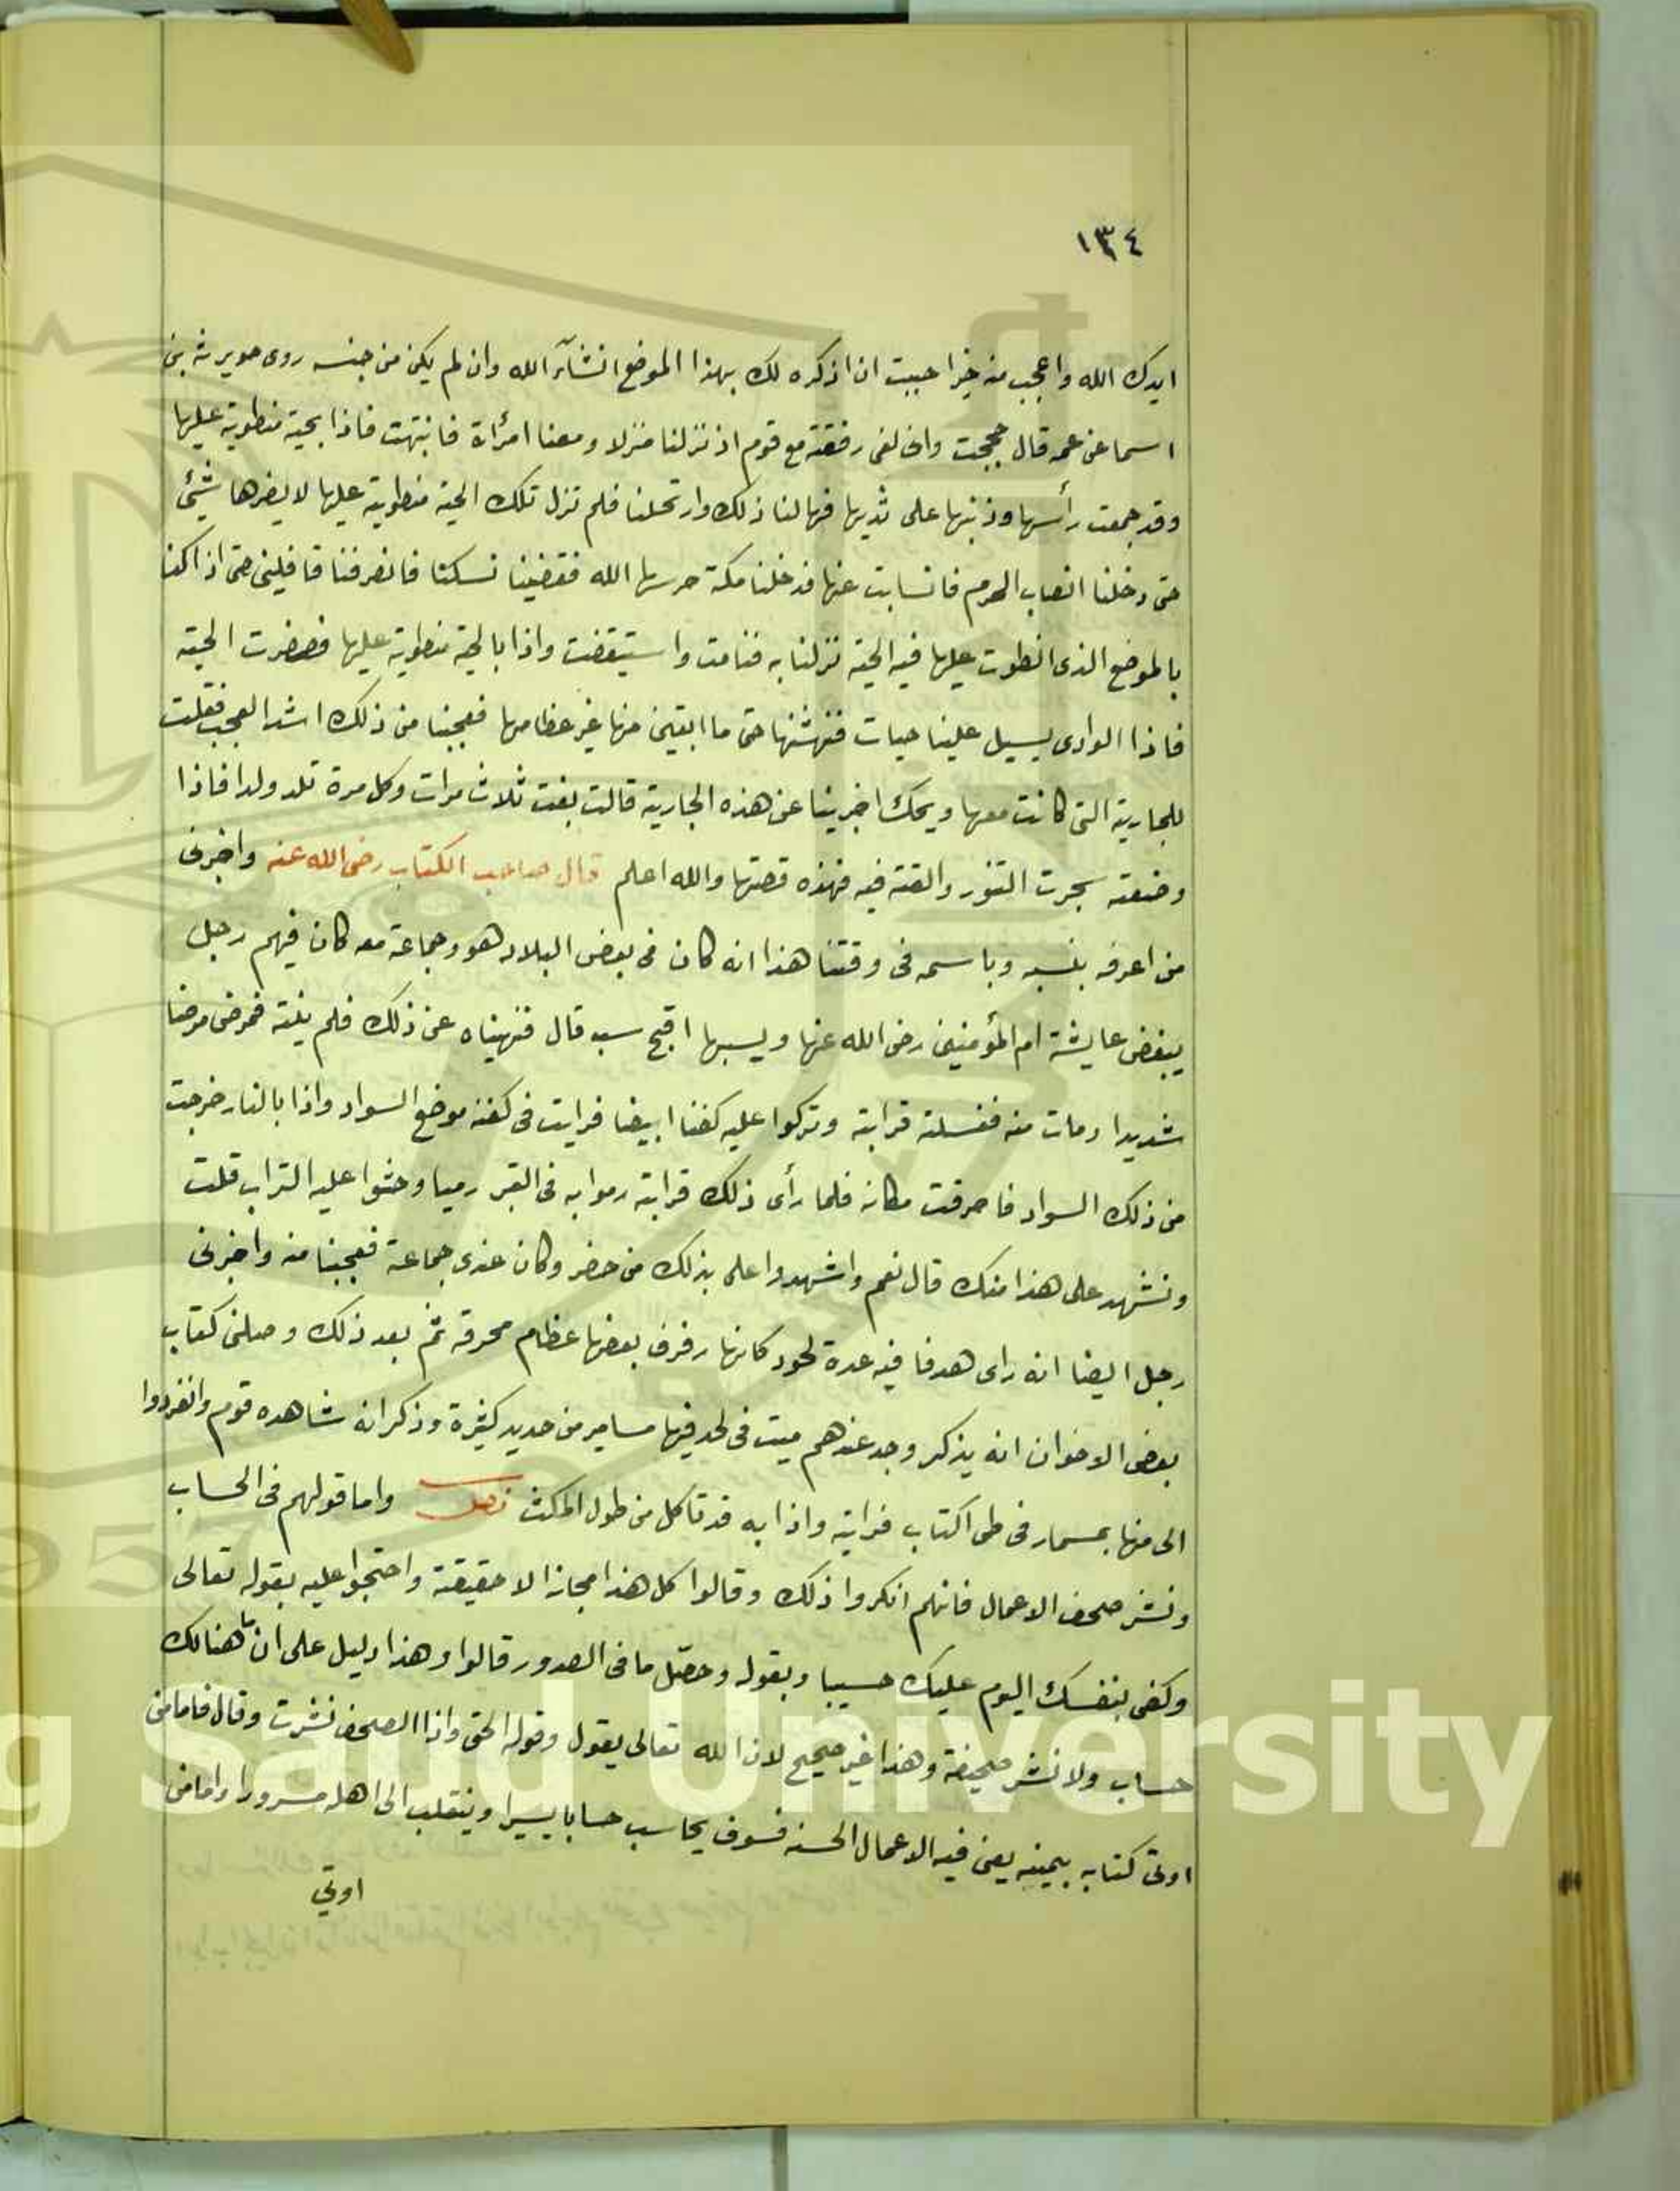 ١٣٤
ايدك الله واعجب منه خبرا حببت ان اذكره لك بهذا الموضع انشآء الله وان لم يكن من جنسه روى جويرية بن
اسما عن عمه قال حججت وانى لفى رفقة مع قوم اذ نزلنا منزلا ومعنا امرأة فانبتهت فاذا بحية منطوية عليها
وقد جمعت رأسها وذنبها على ثديها فهالنا ذلك وارتحلنا فلم تزل تلك الحية منطوية عليها لا يضرها شئ
حتى دخلنا انصاب الحرم فانسابت عنها فدخلنا مكة حرسها الله فقضينا نسكنا فانصرفنا قافلين حتى اذا كنا
بالموضع الذى انطوت عليها فيه الحية نزلنا به فنامت واستيقضت واذا بالحية منطوية عليها فصفرت الحية
فاذا الوادى يسيل علينا حيات فنهشنها حتى ما ابقين منها غير عظامها فعجبنا من ذلك اشد العجب فقلت
للجارية التى كانت معها ويحك اخبرينا عن هذه الجارية قالت بغت ثلاث مرات وكل مرة تلد ولدا فاذا
وضعته سجرت التنور والقته فيه فهذه قصتها والله اعلم قال صاحب الكتاب رضى الله عنه واخبرنى
من اعرفه بنسبه وباسمه فى وقتنا هذا انه كان فى بعض البلاد هو وجماعة معه كان فيهم رجل
يبغض عايشة ام المؤمنين رضى الله عنها ويسبها اقبح سب قال فنهيناه عن ذلك فلم ينته فمرض مرضا
شديدا ومات منه فغسلته قرابته وتركوا عليه كفنا ابيضا فرايت فى كفنه موضع السواد واذا بالنار خرجت
من ذلك السواد فاحرقت مكانه فلما رأى ذلك قرابته رموا به فى القبر رميا وحثوا عليه التراب قلت
ونشهد على هذا منك قال نعم واشهدوا على بذلك من حضر وكان عندى جماعة فعجبنا منه واخبرنى
رجل ايضا انه راى هدفا فيه عدة لحود كانها رفرف بعضها عظام محرقه ثم بعد ذلك وصلنى كتاب
بعض الاخوان انه يذكر وجد عندهم ميت فى لحد فيها مسامير من حديد كثيرة وذكر انه شاهده قوم وانفردوا
الى منها بمسمار فى طى اكتاب فرايته واذا به قد تاكل من طول المكث فصل واما قولهم فى الحساب
ونشر صحف الاعمال فانهم انكروا ذلك وقالوا كل هذا مجازا لا حقيقة واحتجوا عليه بقوله تعالى
وكفى بنفسك اليوم عليك حسيبا وبقوله وحصّل ما فى الصدور قالوا وهذا دليل على ان ما هنالك
حساب ولا نشر صحيفة وهذا غير صحيح لان الله تعالى يقول وقوله الحق واذا الصحف نشرت وقال فاما من
اوتى كتابه بيمينه يعنى فيه الاعمال الحسنه فسوف يحاسب حسابا يسيرا وينقلب الى اهله مسرورا واما من
اوتي
g Saud University